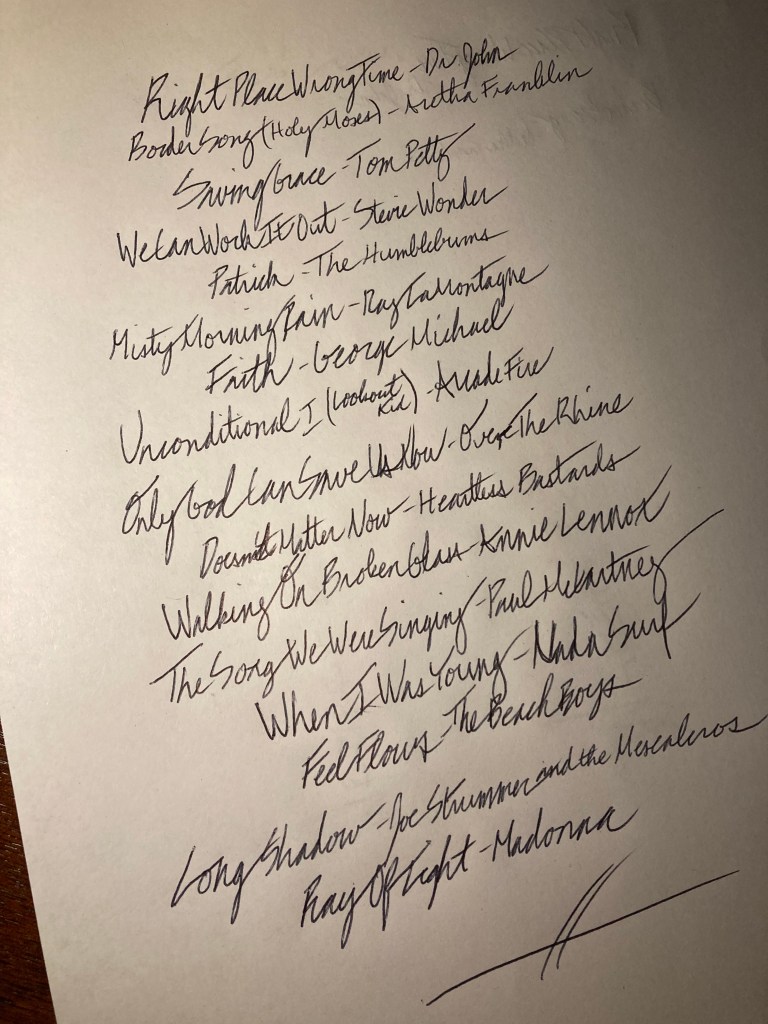 Right Place Wrong Time - Dr. John
Border Song (Holy Moses) - Aretha Franklin
Saving Grace - Tom Petty
We Can Work It Out - Stevie Wonder
Patrick - The Humblebums
Misty Morning Rain - Ray LaMontagne
Faith - George Michael
Unconditional I (Lookout Kid) - Arcade Fire
Only God Can Save Us Now - Over The Rhine
Doesn't Matter Now - Heartless Bastards
Walking On Broken Glass - Annie Lennox
The Song We Were Singing - Paul McCartney
When I Was Young - Nada Surf
Feel Flows - The Beach Boys
Long Shadow - Joe Strummer and the Mescaleros
Ray Of Light - Madonna